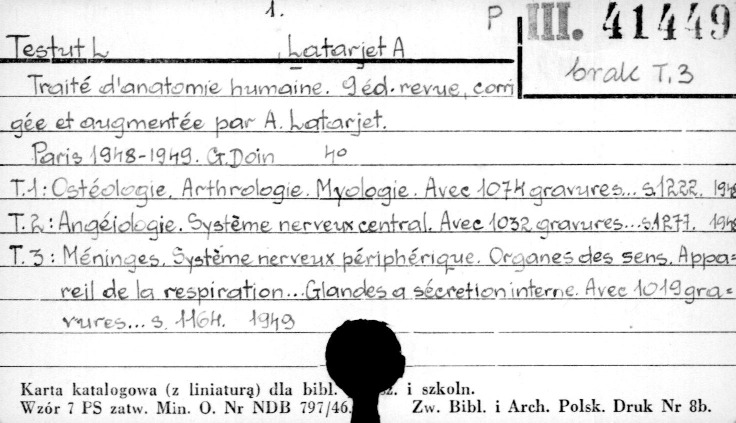 1. P III. 41449
Testut L , Latarjet A
brak T.3
Traité d'anatomie humaine. 9 éd. revue, corri
gée et augmentée par A. Latarjet.
Paris 1948-1949. G. Doin 4°
T.1: Ostéologie. Arthrologie. Myologie. Avec 1074 gravures... s.1222. 1948
T.2: Angéiologie. Système nerveux central. Avec 1032 gravures...s.1277. 1948
T.3: Méninges. Système nerveux périphérique. Organes des sens. Appa=
reil de la respiration... Glandes a sécretion interne. Avec 1019 gra=
vures... s. 1164. 1949
Karta katalogowa (z liniaturą) dla bibl. i szkoln.
Wzór 7 PS zatw. Min. O. Nr NDB 797/46. Zw. Bibl. i Arch. Polsk. Druk Nr 8b.